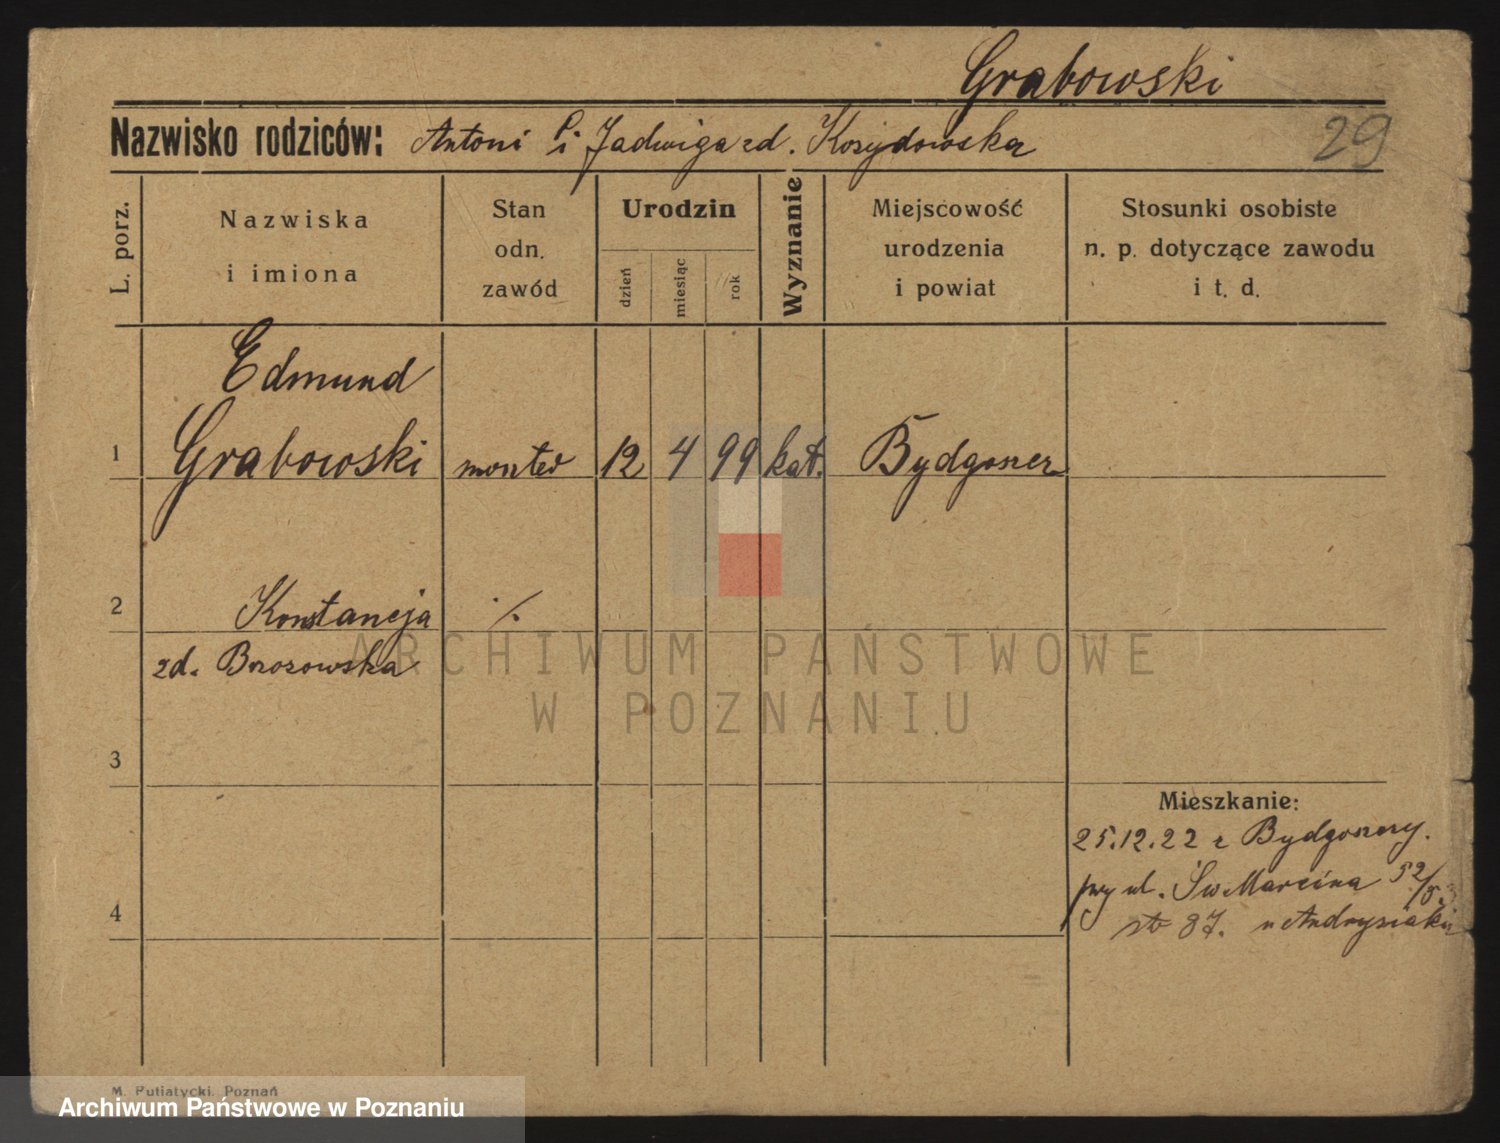 Grabowski
Nazwisko rodziców: Antoni i Jadwiga zd. Kozydowska
29
L. porz.
Nazwiska
i imiona
Stan
odn.
zawód
Urodzin
dzień
miesiąc
rok
Wyznanie
Miejscowość
urodzenia
i powiat
Stosunki osobiste
n. p. dotyczące zawodu
i t. d.
Edmund
1 Grabowski monter 12 4 99 kat. Bydgoszcz
2 Konstancja ./.
zd. Brzozowska
ARCHIWUM PAŃSTWOWE
W POZNANIU
3
Mieszkanie:
25.12.22 z Bydgoszczy.
przy ul. Św Marcina 52/5.
4
87. u Andrysiaka
M. Putiatycki, Poznań
Archiwum Państwowe w Poznaniu